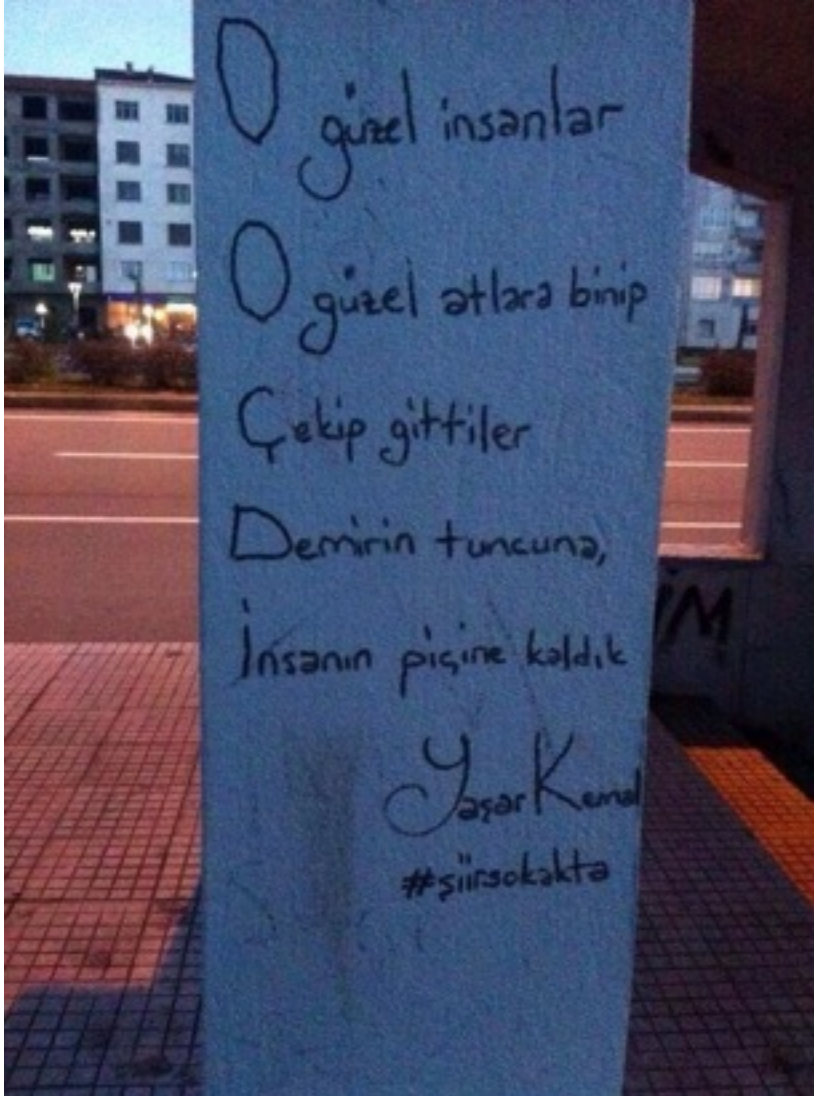 O güzel insanlar
O güzel atlara binip
Çekip gittiler
Demirin tuncuna,
İnsanın piçine kaldık
Yaşar Kemal
#şiirsokakta
İM